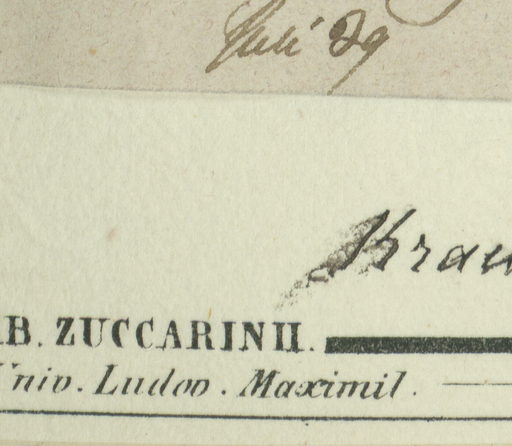 Juli 29
Krau
B. ZUCCARINII.
Univ. Ludov. Maximil.